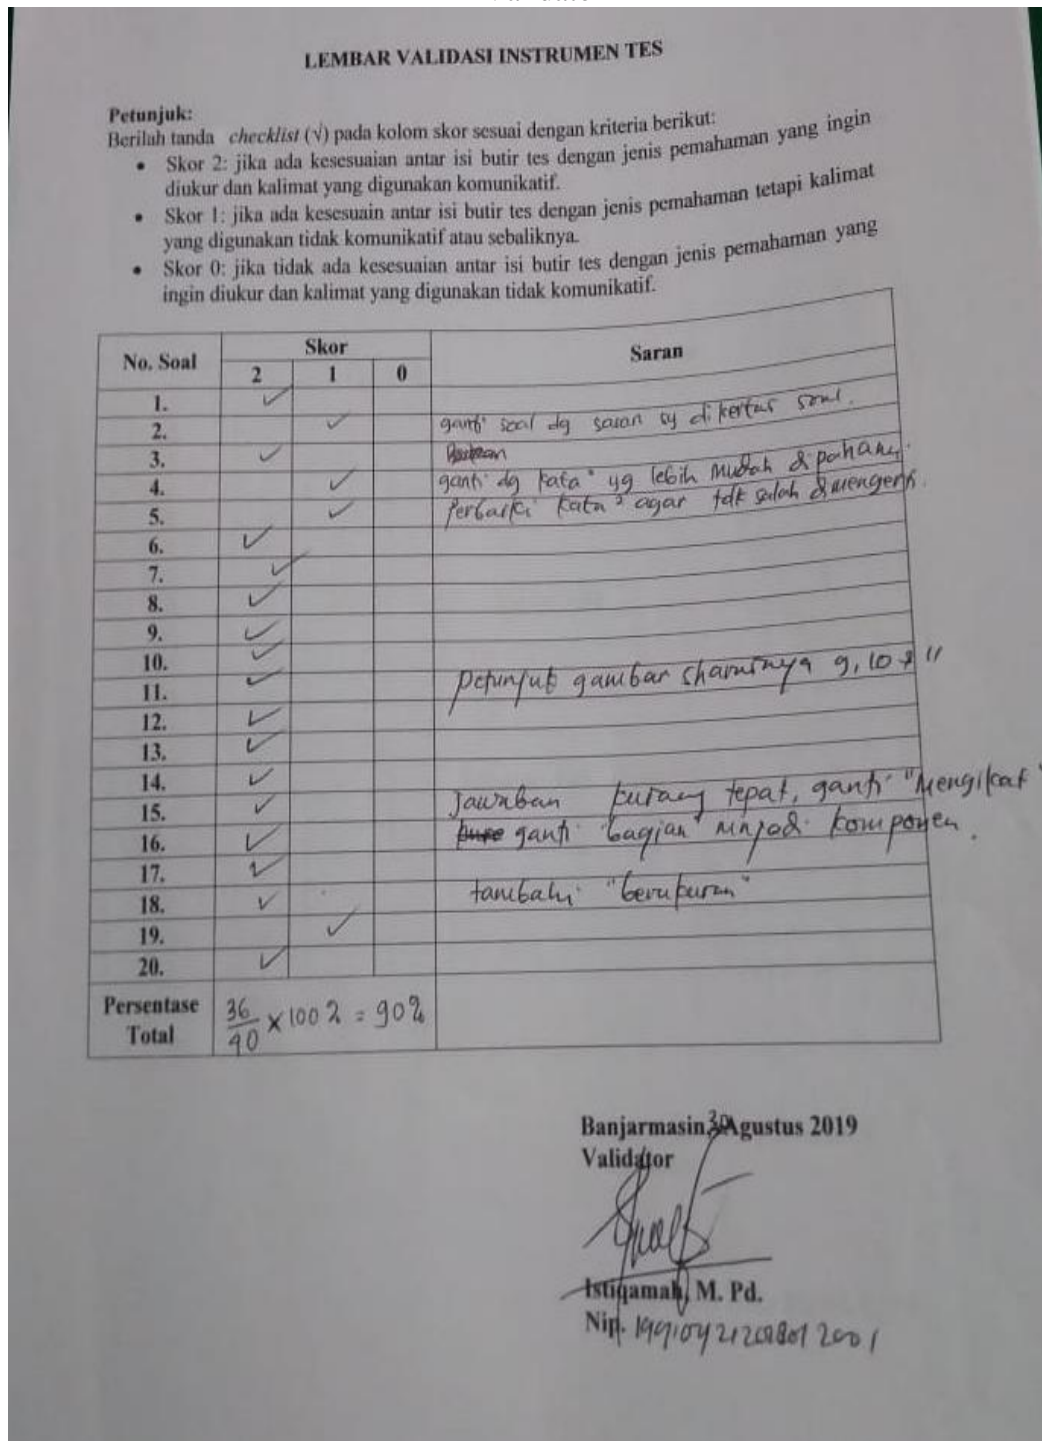 LEMBAR VALIDASI INSTRUMEN TES
Petunjuk:
Berilah tanda checklist (√) pada kolom skor sesuai dengan kriteria berikut:
• Skor 2: jika ada kesesuaian antar isi butir tes dengan jenis pemahaman yang ingin
diukur dan kalimat yang digunakan komunikatif.
• Skor 1: jika ada kesesuain antar isi butir tes dengan jenis pemahaman tetapi kalimat
yang digunakan tidak komunikatif atau sebaliknya.
• Skor 0: jika tidak ada kesesuaian antar isi butir tes dengan jenis pemahaman yang
ingin diukur dan kalimat yang digunakan tidak komunikatif.
No. Soal Skor Saran
2 1 0
1. ✓
2. ✓ ganti soal dg saran sy di kertas soal.
3. ✓
4. ✓ ganti dg kata" yg lebih mudah dipahami.
5. ✓ Perbaiki kata² agar tdk salah dimengerti.
6. ✓
7. ✓
8. ✓
9. ✓
10. ✓
11. ✓ petunjuk gambar sharusnya 9, 10 & 11
12. ✓
13. ✓
14. ✓
15. ✓ Jawaban kurang tepat, ganti "Mengikat"
16. ✓ ganti "bagian" mnjadi komponen.
17. ✓
18. ✓ tambahi "berukuran"
19. ✓
20. ✓
Persentase
Total
36/40 x 100% = 90%
Banjarmasin, Agustus 2019
Validator
Istiqamah, M. Pd.
Nip.